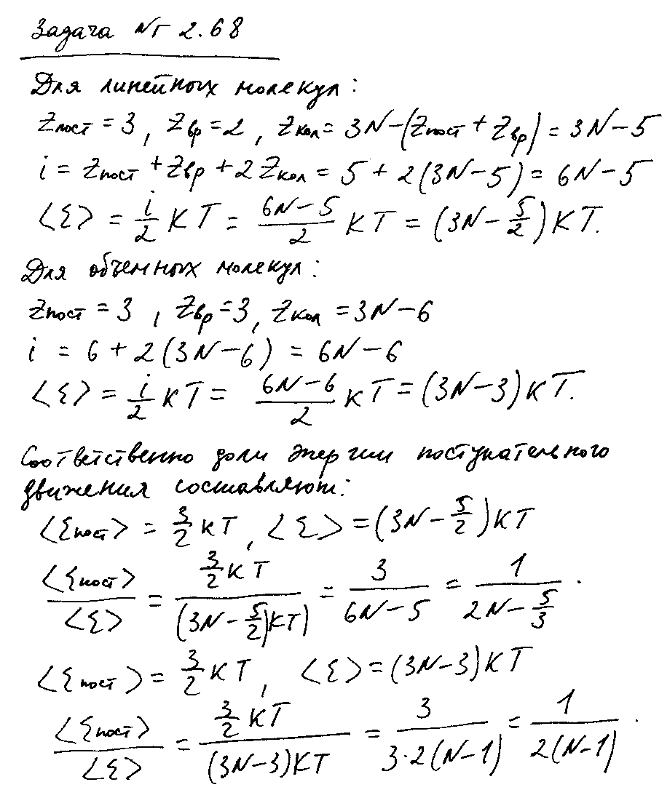 Задача № 2.68
Для линейных молекул:
Zпост = 3, Zвр = 2, Zкол = 3N-(Zпост + Zвр) = 3N-5
i = Zпост + Zвр + 2Zкол = 5 + 2(3N-5) = 6N-5
<ε> = i/2 KT = (6N-5)/2 KT = (3N - 5/2)KT.
Для объемных молекул:
Zпост = 3, Zвр = 3, Zкол = 3N-6
i = 6 + 2(3N-6) = 6N-6
<ε> = i/2 KT = (6N-6)/2 KT = (3N-3)KT.
Соответственно доли энергии поступательного
движения составляют:
<εпост> = 3/2 KT, <ε> = (3N - 5/2)KT
<εпост>/<ε> = 3/2 KT/(3N - 5/2)KT) = 3/(6N-5) = 1/(2N - 5/3).
<εпост> = 3/2 KT, <ε> = (3N-3)KT
<εпост>/<ε> = 3/2 KT/(3N-3)KT = 3/3·2(N-1) = 1/2(N-1).